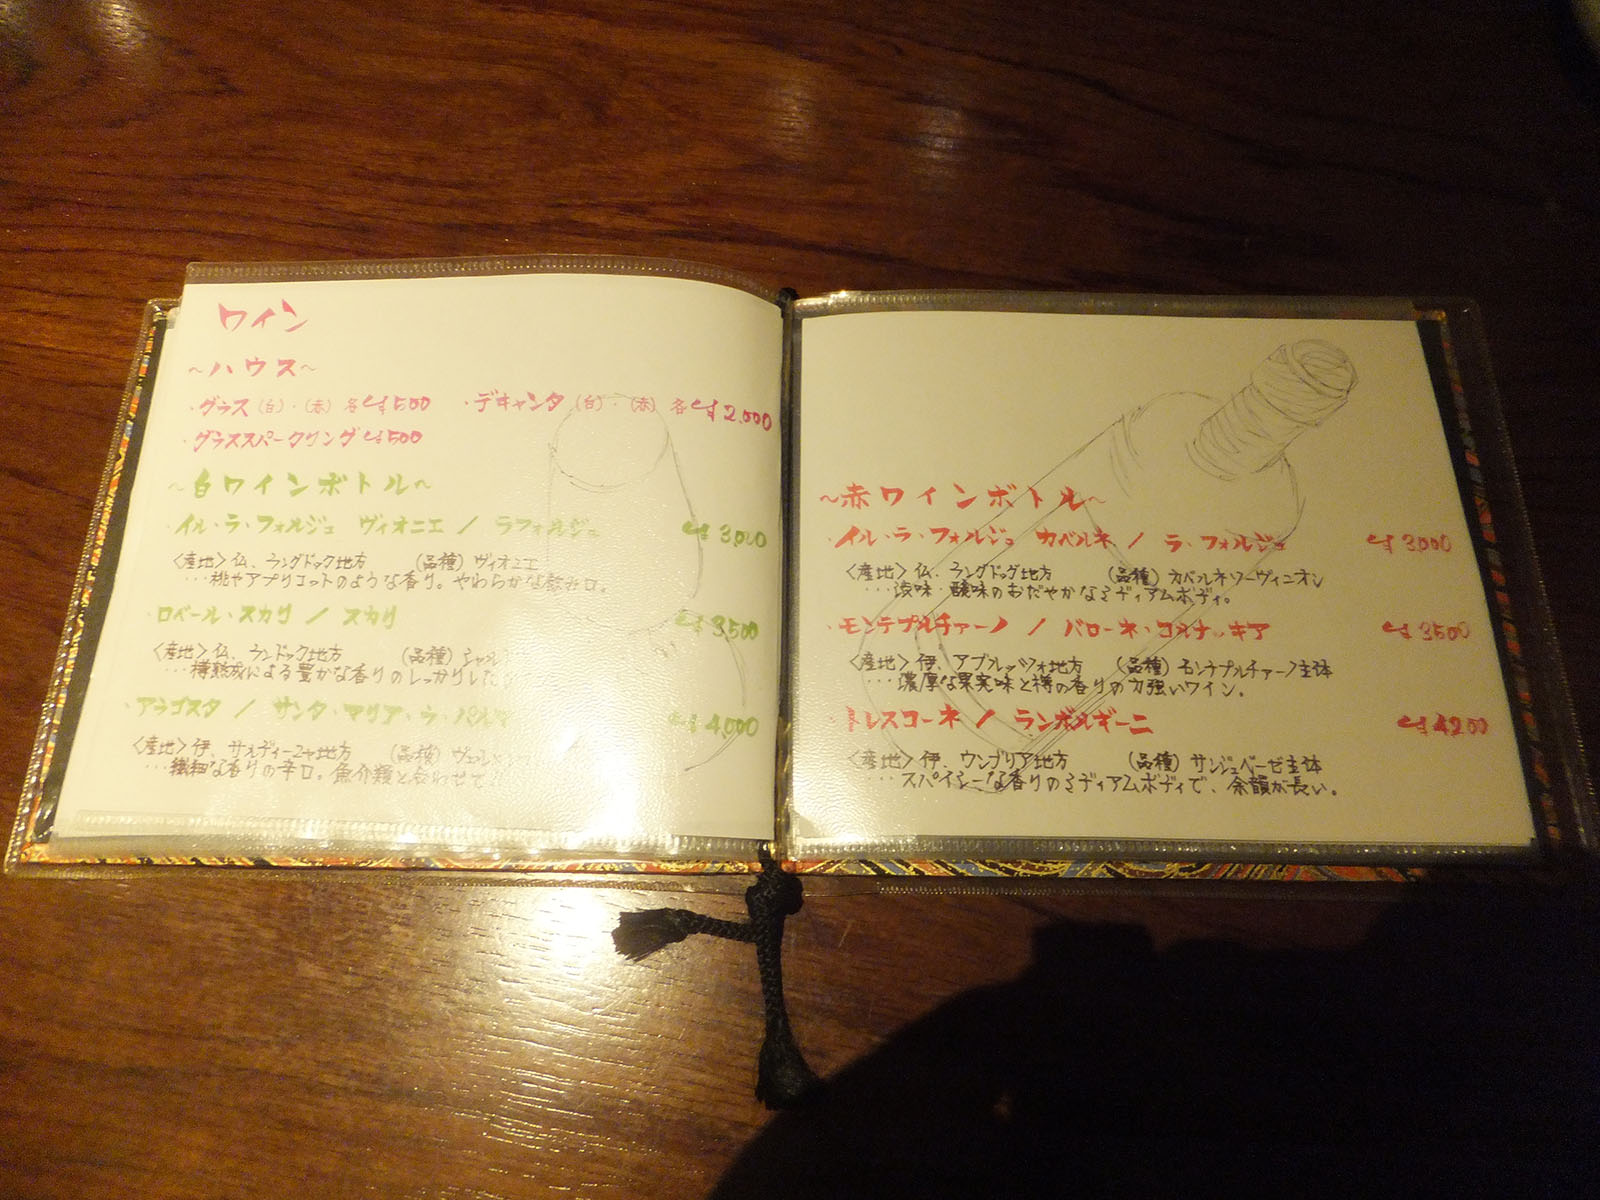 ワイン
～ハウス～
・グラス（白）・（赤） 各 ¥500 ・デキャンタ（白）・（赤） 各 ¥2,000
・グラススパークリング ¥500
～白ワインボトル～
・イル・ラ・フォルジュ ヴィオニエ / ラフォルジュ ¥3,000
〈産地〉仏、ラングドック地方 （品種）ヴィオニエ
・・・桃やアプリコットのような香り。やわらかな飲み口。
・ロベール・スカリ / スカリ ¥3,500
〈産地〉仏、ランドック地方 （品種）シャル
・・・樽熟成による豊かな香りのしっかりした
・アラゴスタ / サンタ・マリア・ラ・パルマ ¥4,000
〈産地〉伊、サルディーニャ地方 （品種）
・・・繊細な香りの辛口。魚介類と合わせて
～赤ワインボトル～
・イル・ラ・フォルジュ カベルネ / ラ・フォルジュ ¥3,000
〈産地〉仏、ラングドッグ地方 （品種）カベルネソーヴィニオン
・・・渋味・酸味のおだやかなミディアムボディ。
・モンテプルチァーノ / バローネ・コルナッキア ¥3,500
〈産地〉伊、アブルッツォ地方 （品種）モンテプルチァーノ主体
・・・濃厚な果実味と樽の香りの力強いワイン。
・トレスコーネ / ランボルギーニ ¥4,200
〈産地〉伊、ウンブリア地方 （品種）サンジュベーゼ主体
・・・スパイシーな香りのミディアムボディで、余韻が長い。